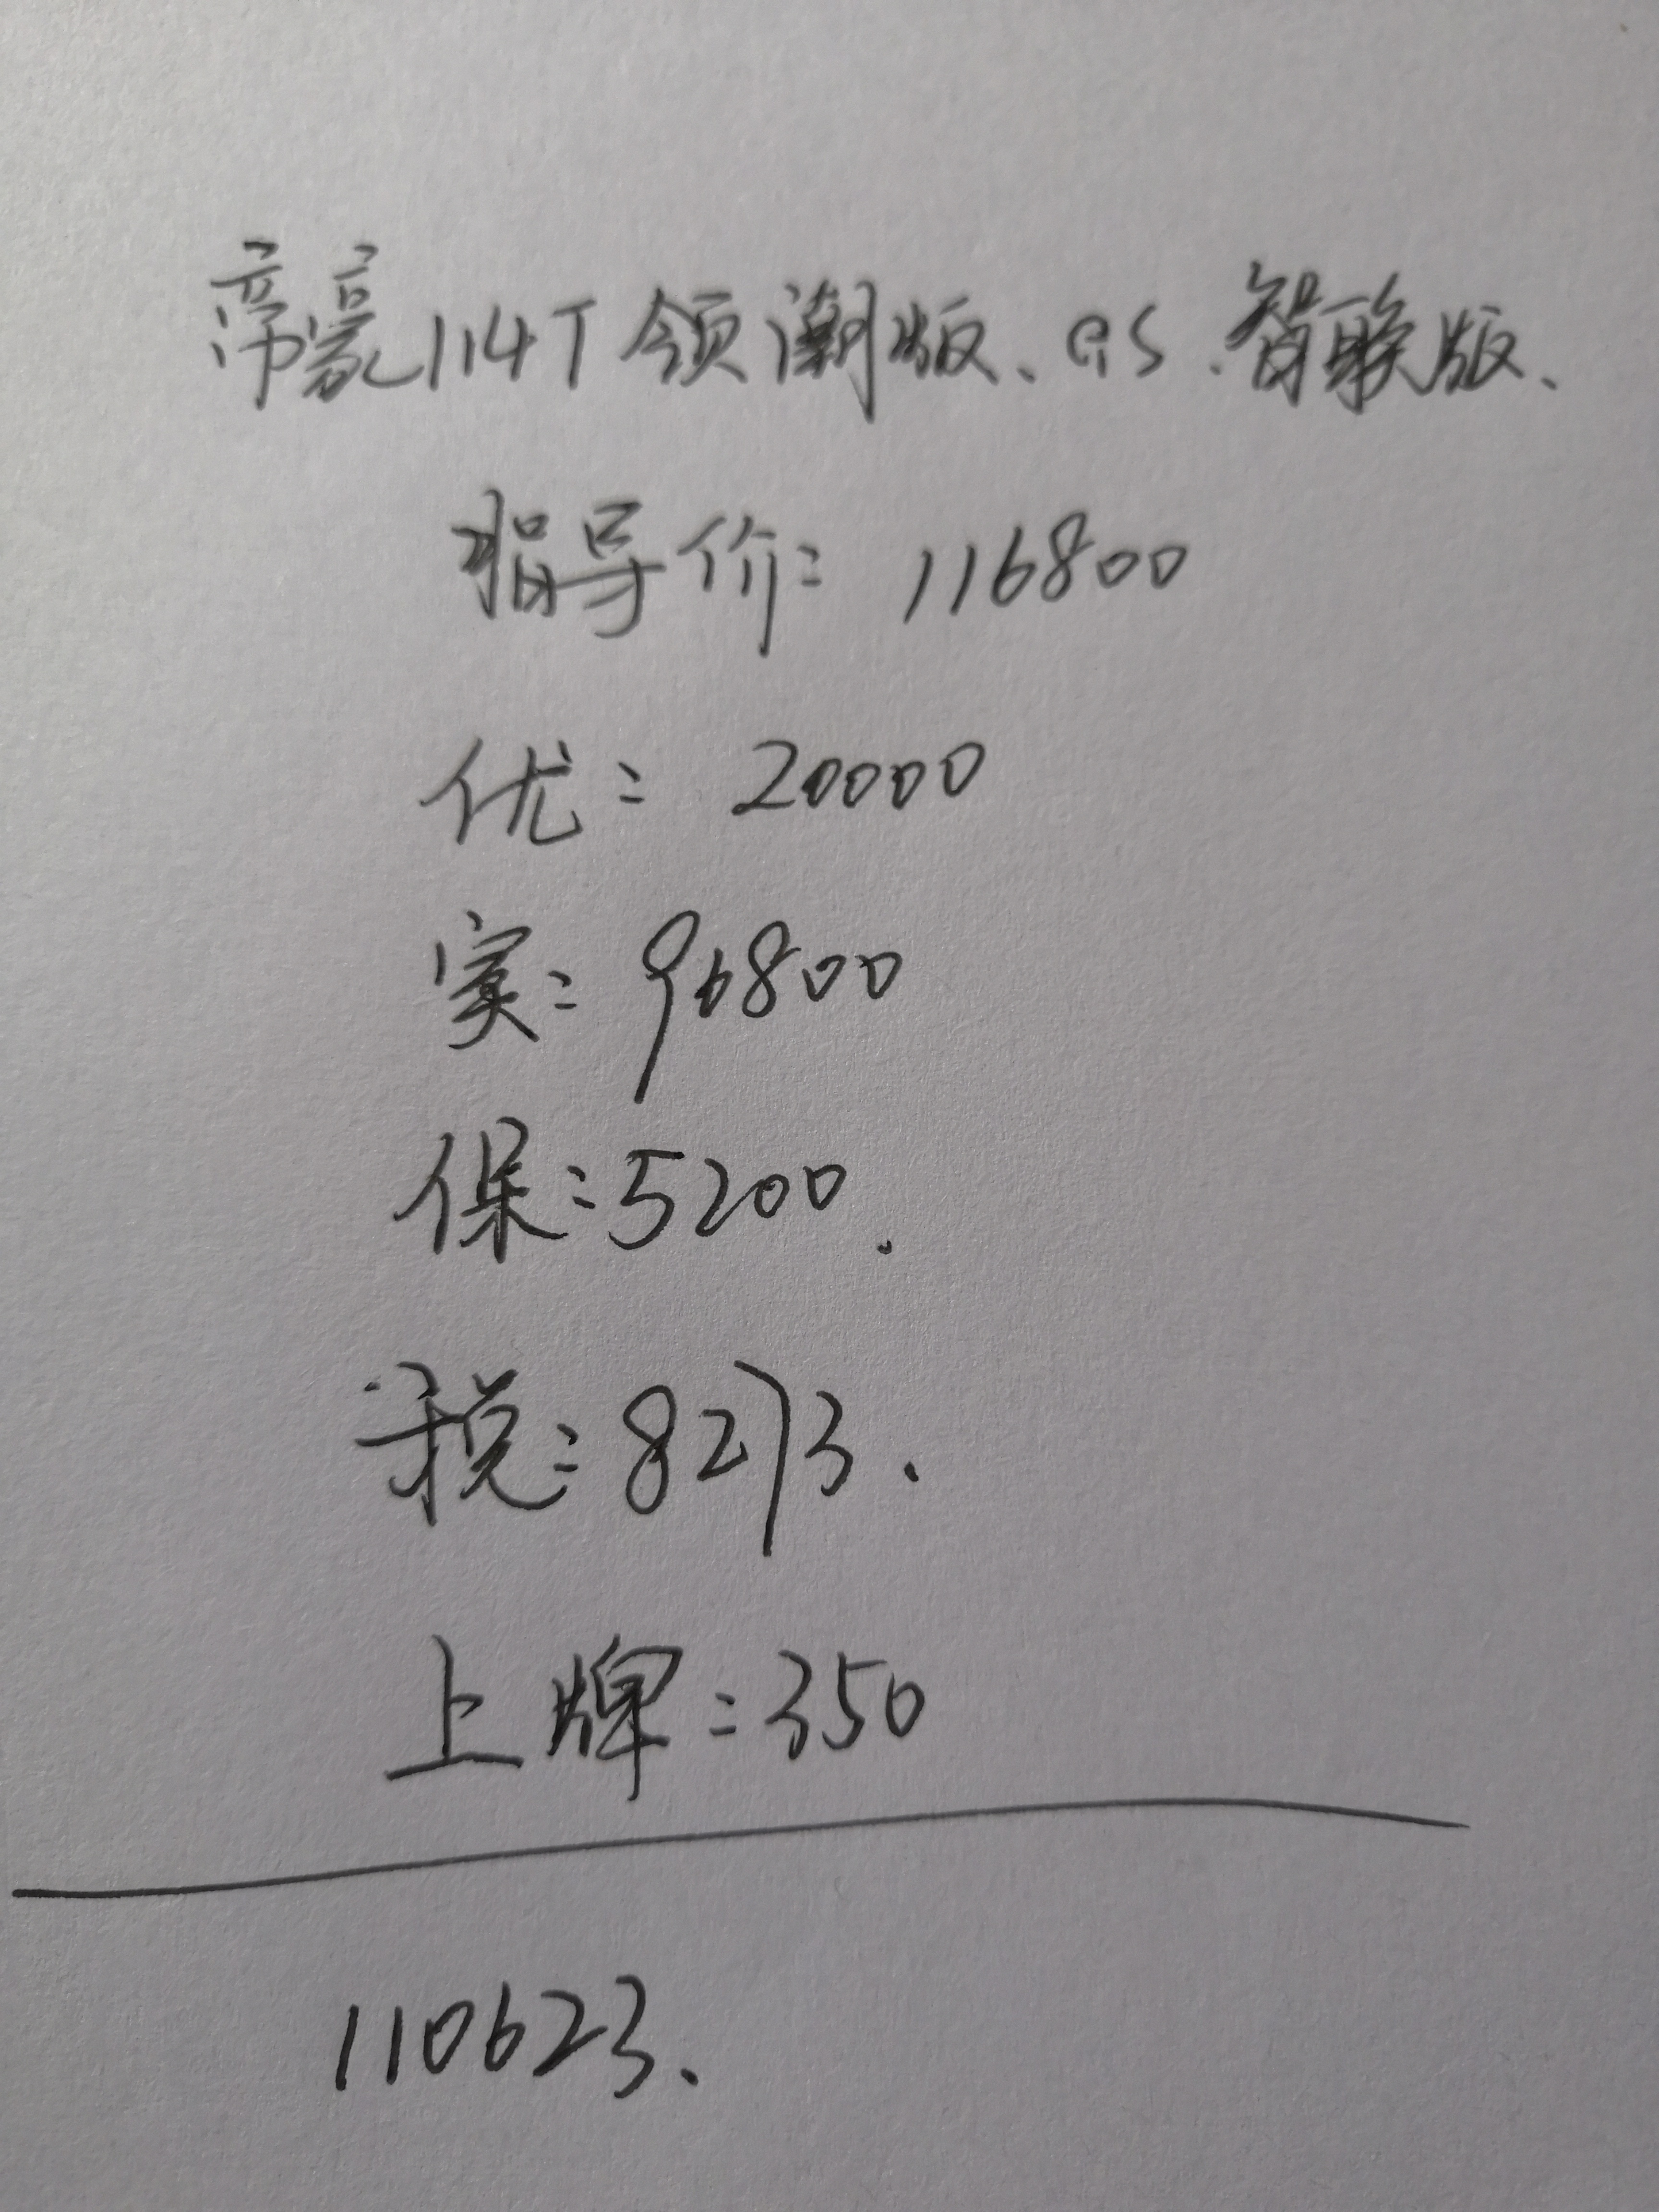 帝豪114T领潮版、GS.智联版、
指导价: 116800
优: 20000
实: 96800
保: 5200.
税: 8273.
上牌: 350
110623.